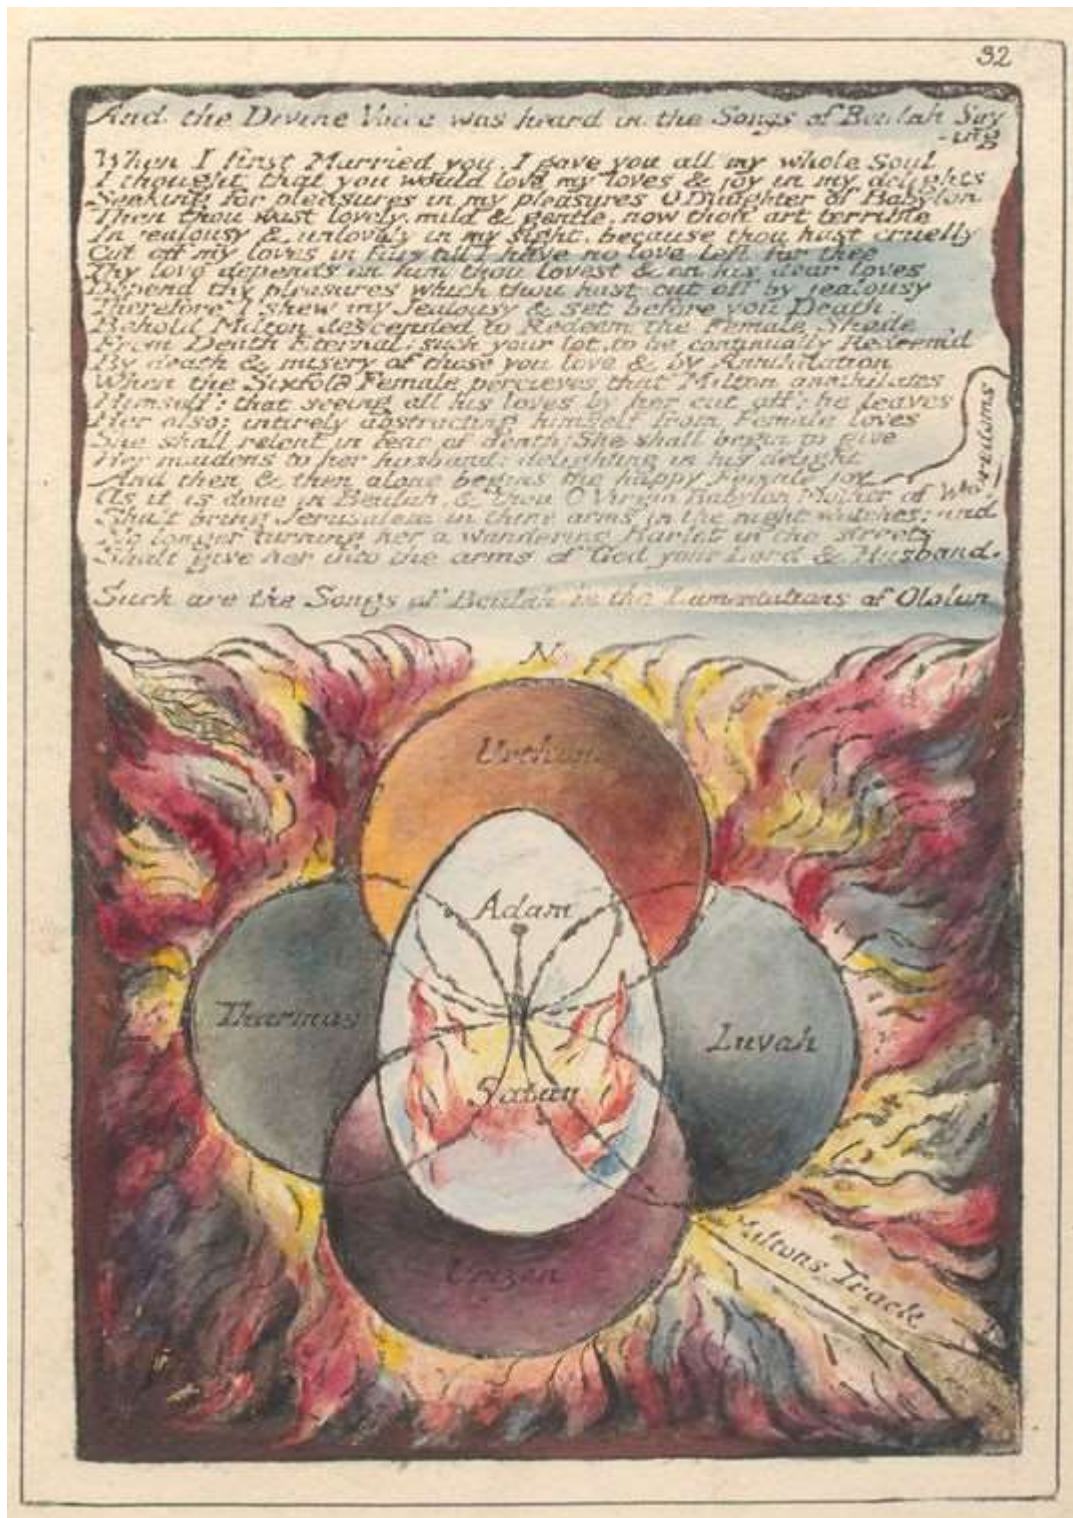 32
And the Divine Voice was heard in the Songs of Beulah Say
-ing
When I first Married you, I gave you all my whole Soul
I thought that you would love my loves & joy in my delights
Seeking for pleasures in my pleasures O Daughter of Babylon
Then thou wast lovely, mild & gentle, now thou art terrible
In jealousy & unlovely in my sight, because thou hast cruelly
Cut off my loves in fury till I have no love left for thee
Thy love depends on him thou lovest & on his dear loves
Depend thy pleasures which thou hast cut off by jealousy
Therefore I shew my Jealousy & set before you Death.
Behold Milton descended to Redeem the Female Shade
From Death Eternal; such your lot, to be continually Redeem'd
By death & misery of those you love & by Annihilation
When the Sixfold Female percieves that Milton annihilates
Himself: that seeing all his loves by her cut off: he leaves
Her also: intirely abstracting himself from Female loves
She shall relent in fear of death: She shall begin to give
Her maidens to her husband: delighting in his delight
And then & then alone begins the happy Female joy
As it is done in Beulah, & thou O Virgin Babylon Mother of Whoredoms
Shalt bring Jerusalem in thine arms in the night watches; and
No longer turning her a wandering Harlot in the streets
Shalt give her into the arms of God your Lord & Husband.
Such are the Songs of Beulah in the Lamentations of Ololon
N
Urthona
Adam
Tharmas
Luvah
Satan
Urizen
Miltons Track